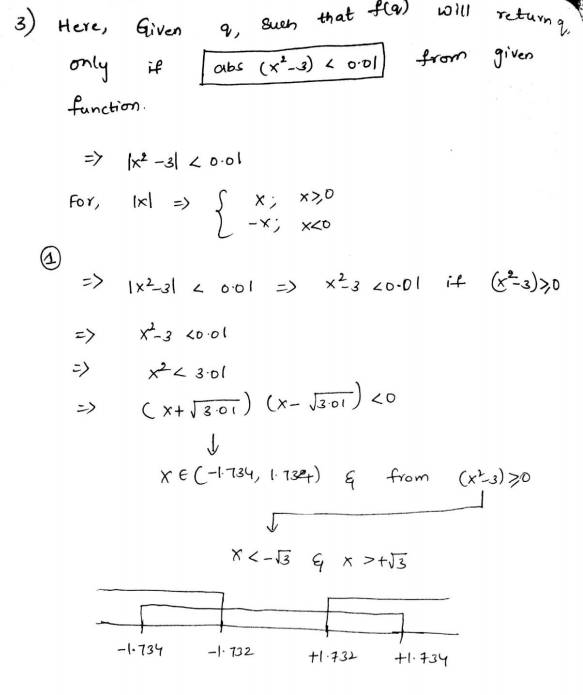 3) Here, Given q, such that f(q) will return q,
only if abs (x²-3) < 0.01 from given
function.
=> |x² -3| < 0.01
For, |x| => { x; x≥0
-x; x<0
①
=> |x²-3| < 0.01 => x²-3 <0.01 if (x²-3)≥0
=> x²-3 <0.01
=> x² < 3.01
=> (x+√3.01) (x-√3.01) <0
↓
x ∈ (-1.734, 1.734) & from (x²-3)≥0
x <-√3 & x >+√3
-1.734 -1.732 +1.732 +1.734